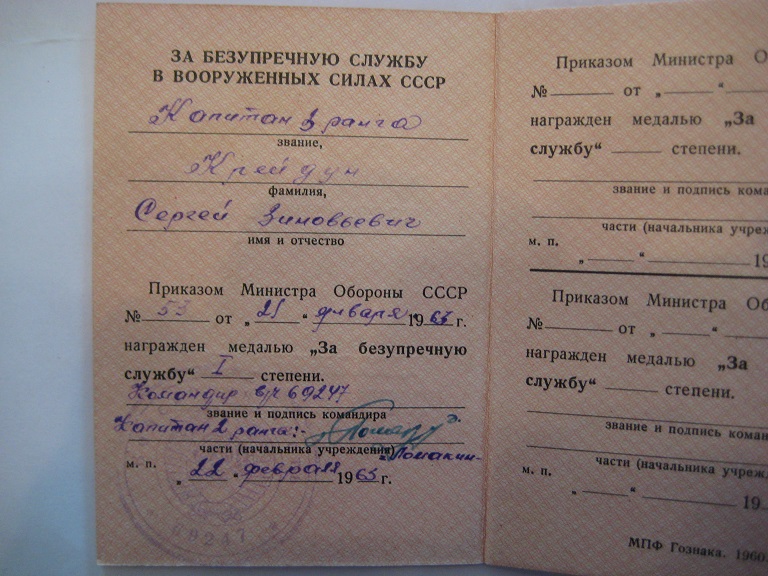 ЗА БЕЗУПРЕЧНУЮ СЛУЖБУ
В ВООРУЖЕННЫХ СИЛАХ СССР
Капитан 3 ранга
звание,
Крейдун
фамилия,
Сергей Зиновьевич
имя и отчество
Приказом Министра Обороны СССР
№ 53 от „ 21 “ января 1963 г.
награжден медалью „За безупречную
службу“ I степени.
Командир в/ч 69247
звание и подпись командира
Капитан 2 ранга:-
части (начальника учреждения)
„Ломакин-
м. п. „ 22 “ февраля 1963 г.
69247
Приказом Министра О
№ от „ “
награжден медалью „За
службу“ степени.
звание и подпись кома
части (начальника учреж
м. п. „ “ 19
Приказом Министра Об
№ от „ “
награжден медалью „За
службу“ степени.
звание и подпись коман
части (начальника учреж
м. п. „ “ 19
МПФ Гознака. 1960